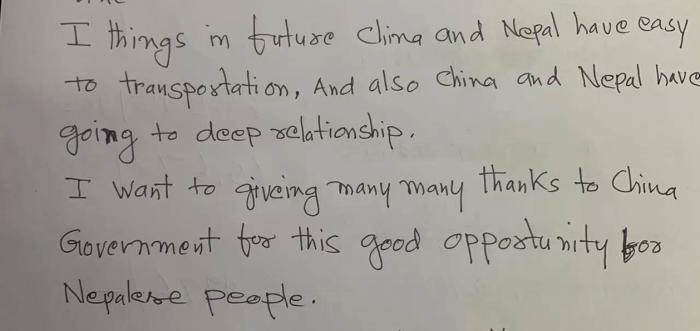 I things in future China and Nepal have easy
to transportation, And also China and Nepal have
going to deep relationship.
I want to giveing many many thanks to China
Government for this good opportunity for
Nepalese people.